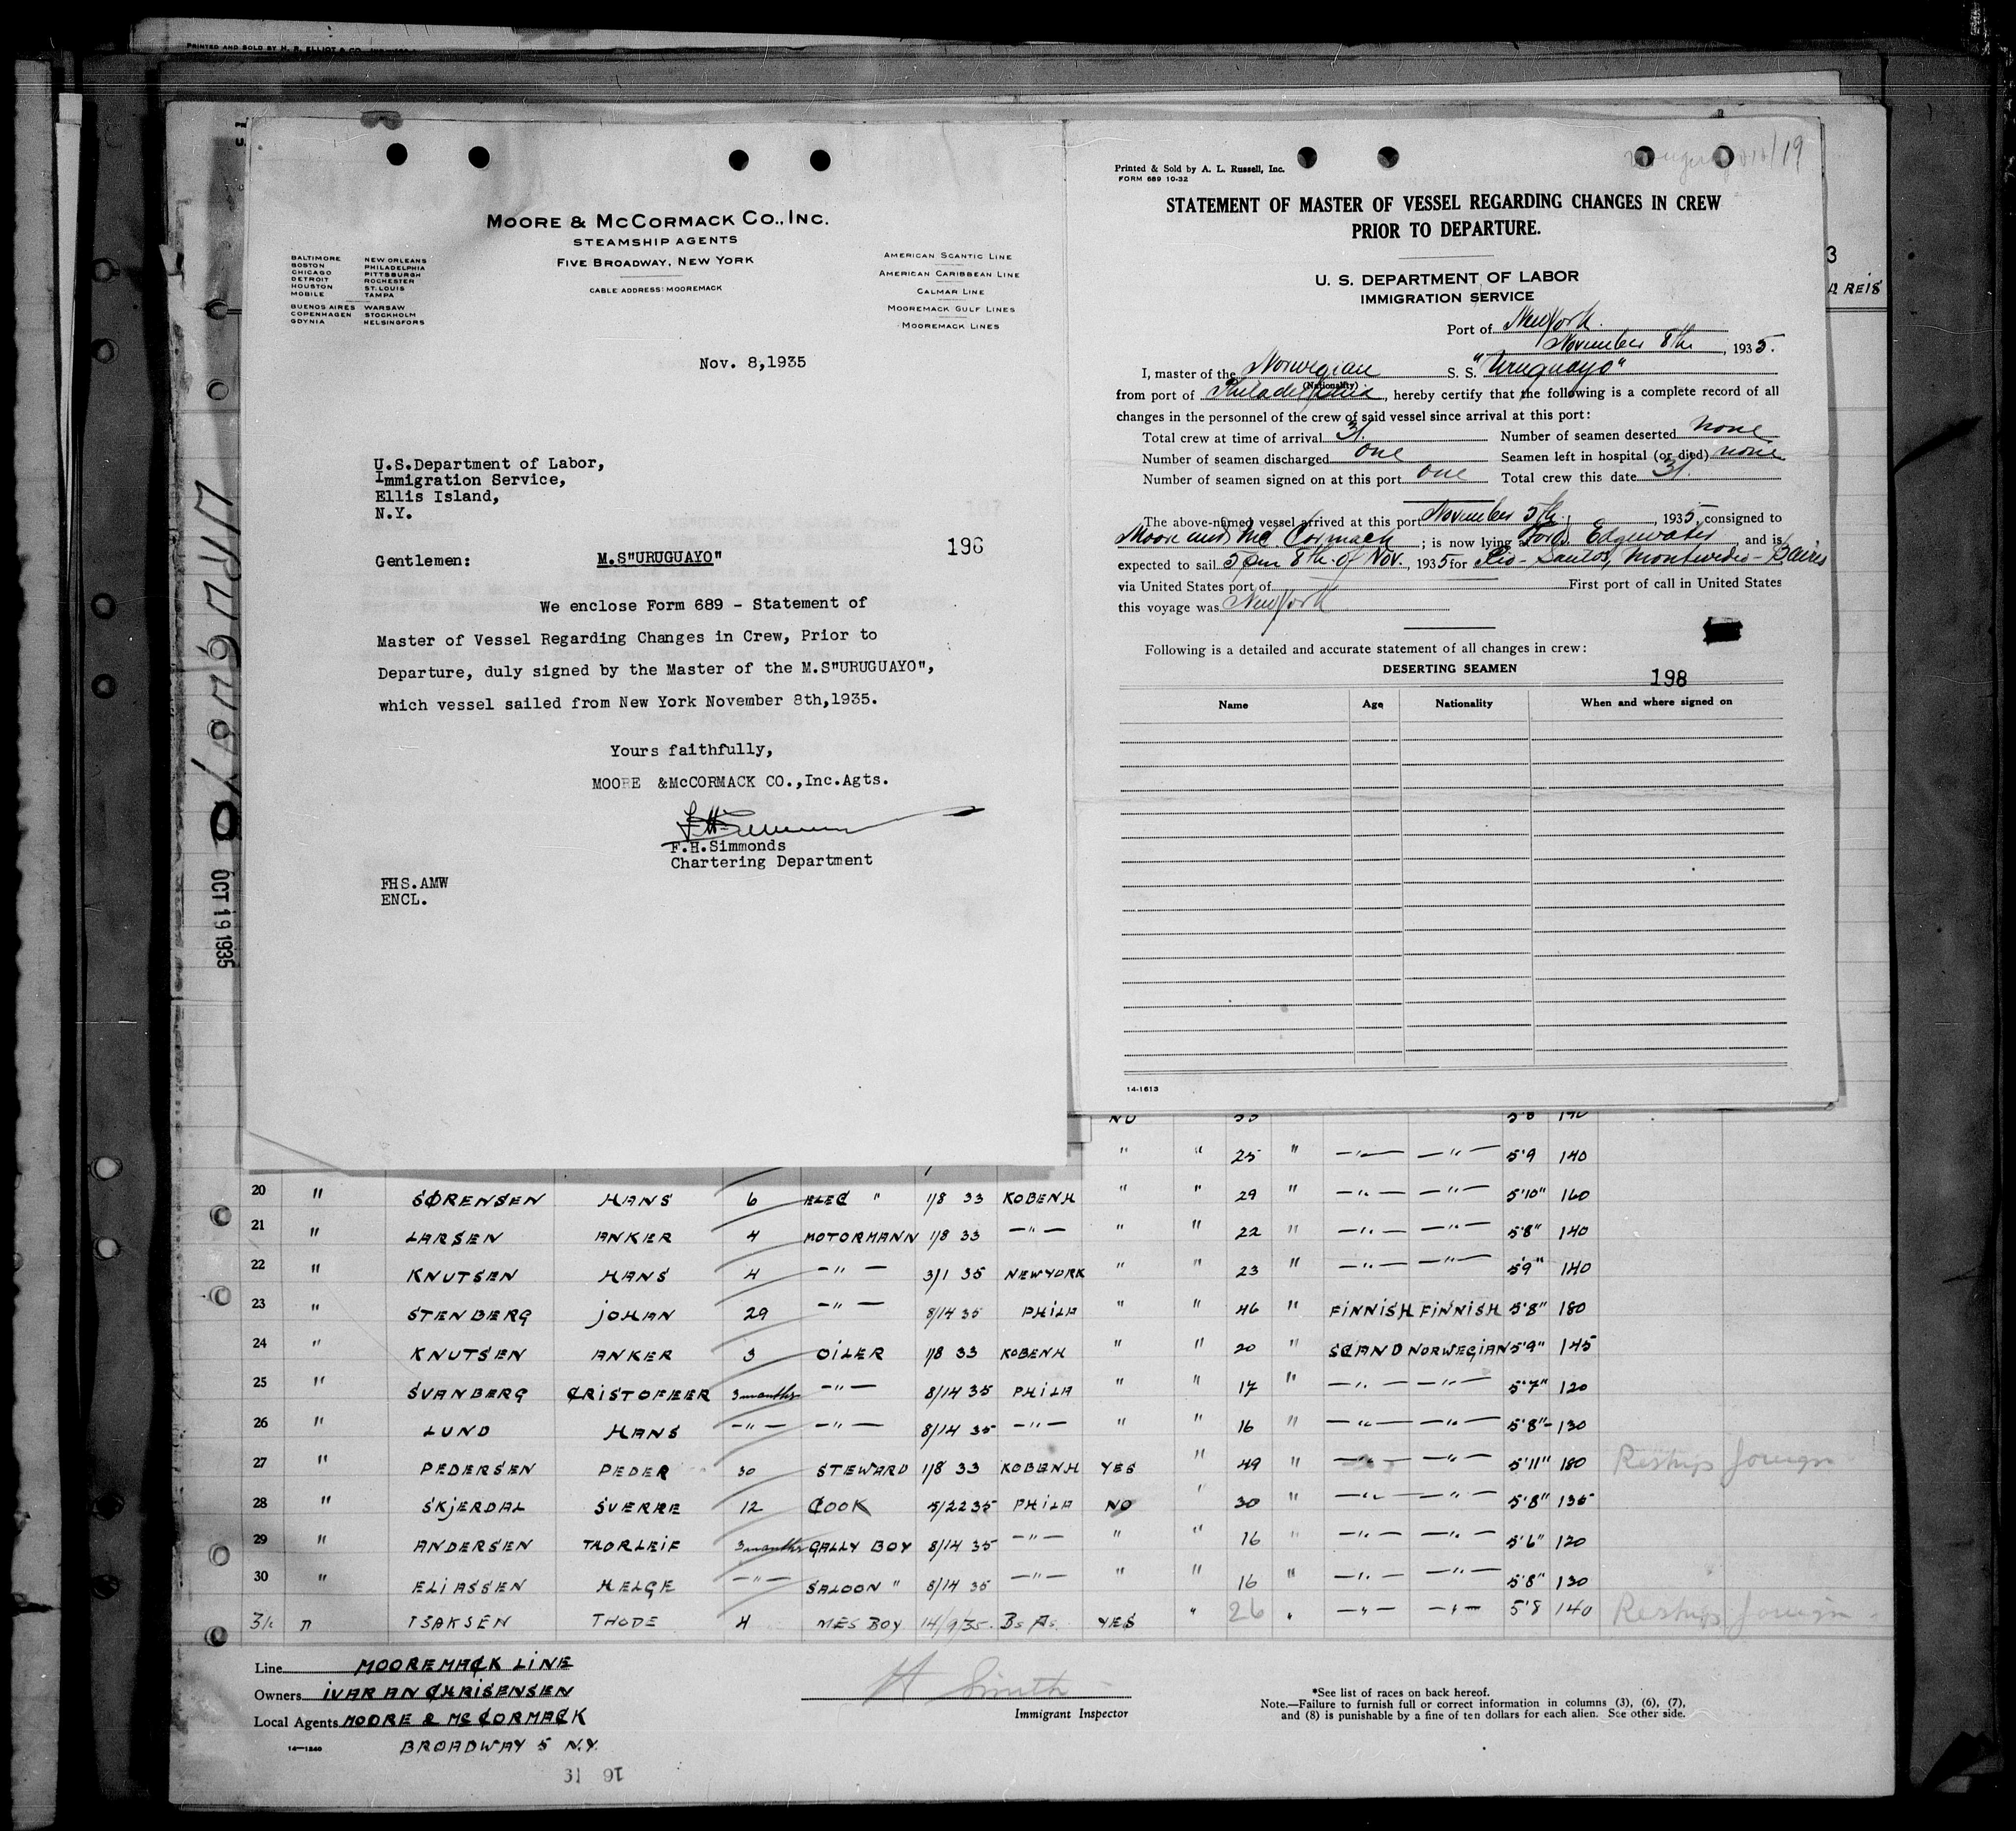 PRINTED AND SOLD BY H. B. ELLIOT & CO.
Uruguayo
OCT 19 1935
MOORE & MCCORMACK CO., INC.
STEAMSHIP AGENTS
FIVE BROADWAY, NEW YORK
CABLE ADDRESS: MOOREMACK
BALTIMORE NEW ORLEANS
BOSTON PHILADELPHIA
CHICAGO PITTSBURGH
DETROIT ROCHESTER
HOUSTON ST. LOUIS
MOBILE TAMPA
BUENOS AIRES WARSAW
COPENHAGEN STOCKHOLM
GDYNIA HELSINGFORS
AMERICAN SCANTIC LINE
AMERICAN CARIBBEAN LINE
CALMAR LINE
MOOREMACK GULF LINES
MOOREMACK LINES
Nov. 8,1935
U.S.Department of Labor,
Immigration Service,
Ellis Island,
N.Y.
196
Gentlemen: M.S"URUGUAYO"
We enclose Form 689 - Statement of
Master of Vessel Regarding Changes in Crew, Prior to
Departure, duly signed by the Master of the M.S"URUGUAYO",
which vessel sailed from New York November 8th,1935.
Yours faithfully,
MOORE &McCORMACK CO.,Inc.Agts.
F.H.Simmonds
Chartering Department
FHS.AMW
ENCL.
Printed & Sold by A. L. Russell, Inc.
FORM 689 10-32
STATEMENT OF MASTER OF VESSEL REGARDING CHANGES IN CREW
PRIOR TO DEPARTURE.
U. S. DEPARTMENT OF LABOR
IMMIGRATION SERVICE
Port of New York.
November 8th, 1935.
I, master of the Norwegian S. S. "Uruguayo"
(Nationality)
from port of Philadelphia, hereby certify that the following is a complete record of all
changes in the personnel of the crew of said vessel since arrival at this port:
Total crew at time of arrival 31. Number of seamen deserted none
Number of seamen discharged one Seamen left in hospital (or died) none
Number of seamen signed on at this port one Total crew this date 31.
The above-named vessel arrived at this port November 5th, 1935, consigned to
Moore and Mc Cormack; is now lying at Ford Edgewater, and is
expected to sail 5 pm 8th of Nov., 1935 for Rio - Santos, Montevideo - Baires
via United States port of First port of call in United States
this voyage was New York
Following is a detailed and accurate statement of all changes in crew:
DESERTING SEAMEN
198
Name Age Nationality When and where signed on
14-1613
3
REIS
" " 25 " —"— —"— 5'9 140
20 " SØRENSEN HANS 6 ELEC " 1/8 33 KOBENH " " 29 " —"— —"— 5'10" 160
21 " LARSEN ANKER 4 MOTORMANN 1/8 33 —"— " " 22 " —"— —"— 5'8" 140
22 " KNUTSEN HANS 4 —"— 3/1 35 NEWYORK " " 23 " —"— —"— 5'9" 140
23 " STENBERG JOHAN 29 —"— 8/14 35 PHILA " " 46 " FINNISH FINNISH 5'8" 180
24 " KNUTSEN ANKER 3 OILER 1/8 33 KOBENH " " 20 " SCAND NORWEGIAN 5'9" 145
25 " SVANBERG CRISTOFEER 3 months —"— 8/14 35 PHILA " " 17 " —"— —"— 5'7" 120
26 " LUND HANS —"— —"— 8/14 35 —"— " " 16 " —"— —"— 5'8"- 130
27 " PEDERSEN PEDER 30 STEWARD 1/8 33 KOBENH YES " 49 " —"— —"— 5'11" 180 Reships foreign
28 " SKJERDAL SVERRE 12 COOK 5/22 35 PHILA NO " 30 " —"— —"— 5'8" 135
29 " ANDERSEN THORLEIF 3 months GALLY BOY 8/14 35 —"— " " 16 " —"— —"— 5'6" 120
30 " ELIASSEN HELGE —"— SALOON " 8/14 35 —"— " " 16 " —"— —"— 5'8" 130
31. " ISAKSEN THODE 4 MES BOY 14/9/35. Bs As. YES " 26 " —"— —"— 5'8 140 Reships foreign
Line MOOREMACK LINE
Owners IVAR AN CHRISENSEN
Local Agents MOORE & MC CORMACK
14—1240 BROADWAY 5 N.Y.
H Smith
Immigrant Inspector
*See list of races on back hereof.
Note.—Failure to furnish full or correct information in columns (3), (6), (7),
and (8) is punishable by a fine of ten dollars for each alien. See other side.